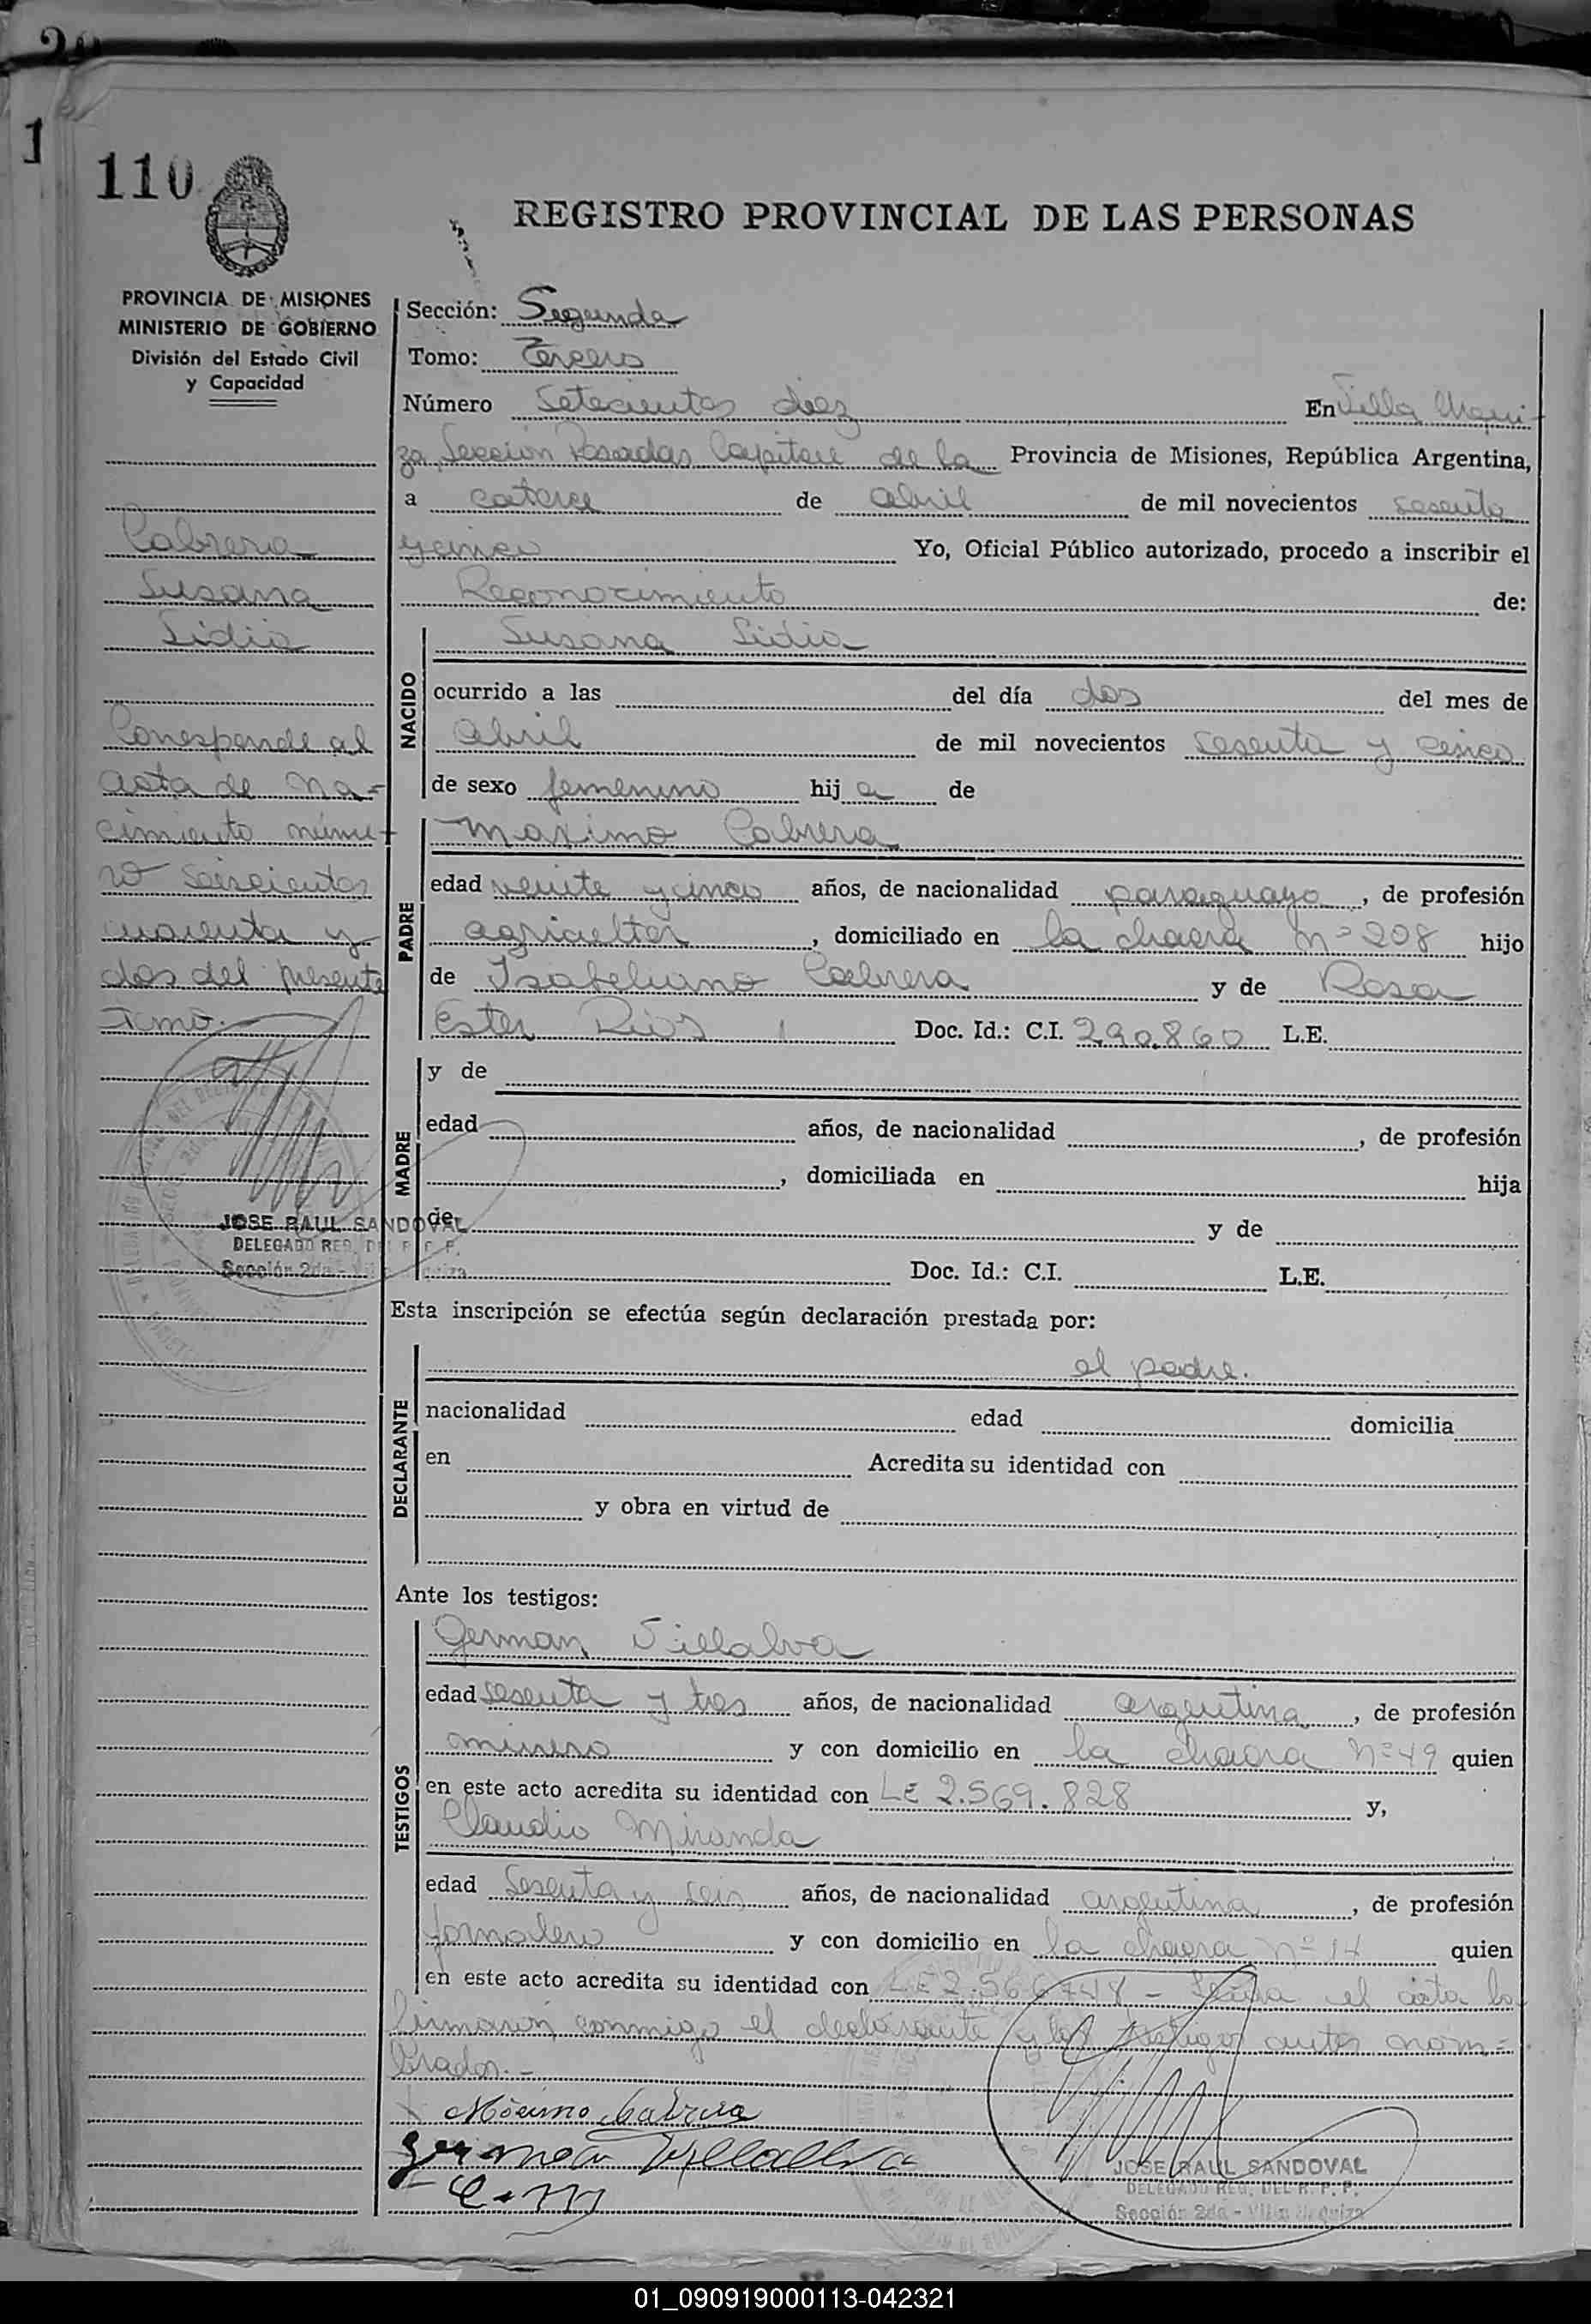 1
110
REGISTRO PROVINCIAL DE LAS PERSONAS
PROVINCIA DE MISIONES
MINISTERIO DE GOBIERNO
División del Estado Civil
y Capacidad
Cabrera
Susana
Lidia
Corresponde al
acta de na=
cimiento núme-
ro seiscientos
cuarenta y
dos del presente
tomo.
JOSE RAUL SANDOVAL
DELEGADO REG. DEL R. P. P.
Sección 2da - Villa Urquiza
Sección: Segunda
Tomo: Tercero
Número Setecientos diez En Villa Urqui-
za, Sección Posadas Capital de la Provincia de Misiones, República Argentina,
a catorce de abril de mil novecientos sesenta
y cinco Yo, Oficial Público autorizado, procedo a inscribir el
Reconocimiento de:
NACIDO
Susana Lidia
ocurrido a las del día dos del mes de
abril de mil novecientos sesenta y cinco
de sexo femenino hij a de
PADRE
Maximo Cabrera
edad veinte y cinco años, de nacionalidad paraguayo, de profesión
agricultor, domiciliado en la chacra Nº 208 hijo
de Isabeliano Cabrera y de Rosa
Ester Rios Doc. Id.: C.I. 290.860 L.E.
MADRE
y de
edad años, de nacionalidad , de profesión
, domiciliada en hija
de y de
Doc. Id.: C.I. L.E.
Esta inscripción se efectúa según declaración prestada por:
DECLARANTE
el padre.
nacionalidad edad domicilia
en Acredita su identidad con
y obra en virtud de
Ante los testigos:
TESTIGOS
German Villalva
edad sesenta y tres años, de nacionalidad argentina, de profesión
minero y con domicilio en la chacra Nº 49 quien
en este acto acredita su identidad con LE 2.569.828 y,
Claudio Miranda
edad Sesenta y seis años, de nacionalidad argentina, de profesión
jornalero y con domicilio en la chacra Nº 14 quien
en este acto acredita su identidad con LE 2.566748 - el acta la
firmaron conmigo el declarante y los testigos antes nom=
brados.-
Máximo Cabrera
German Villalva
C. M
JOSE RAUL SANDOVAL
DELEGADO REG. DEL R. P. P.
Sección 2da - Villa Urquiza
01_090919000113-042321